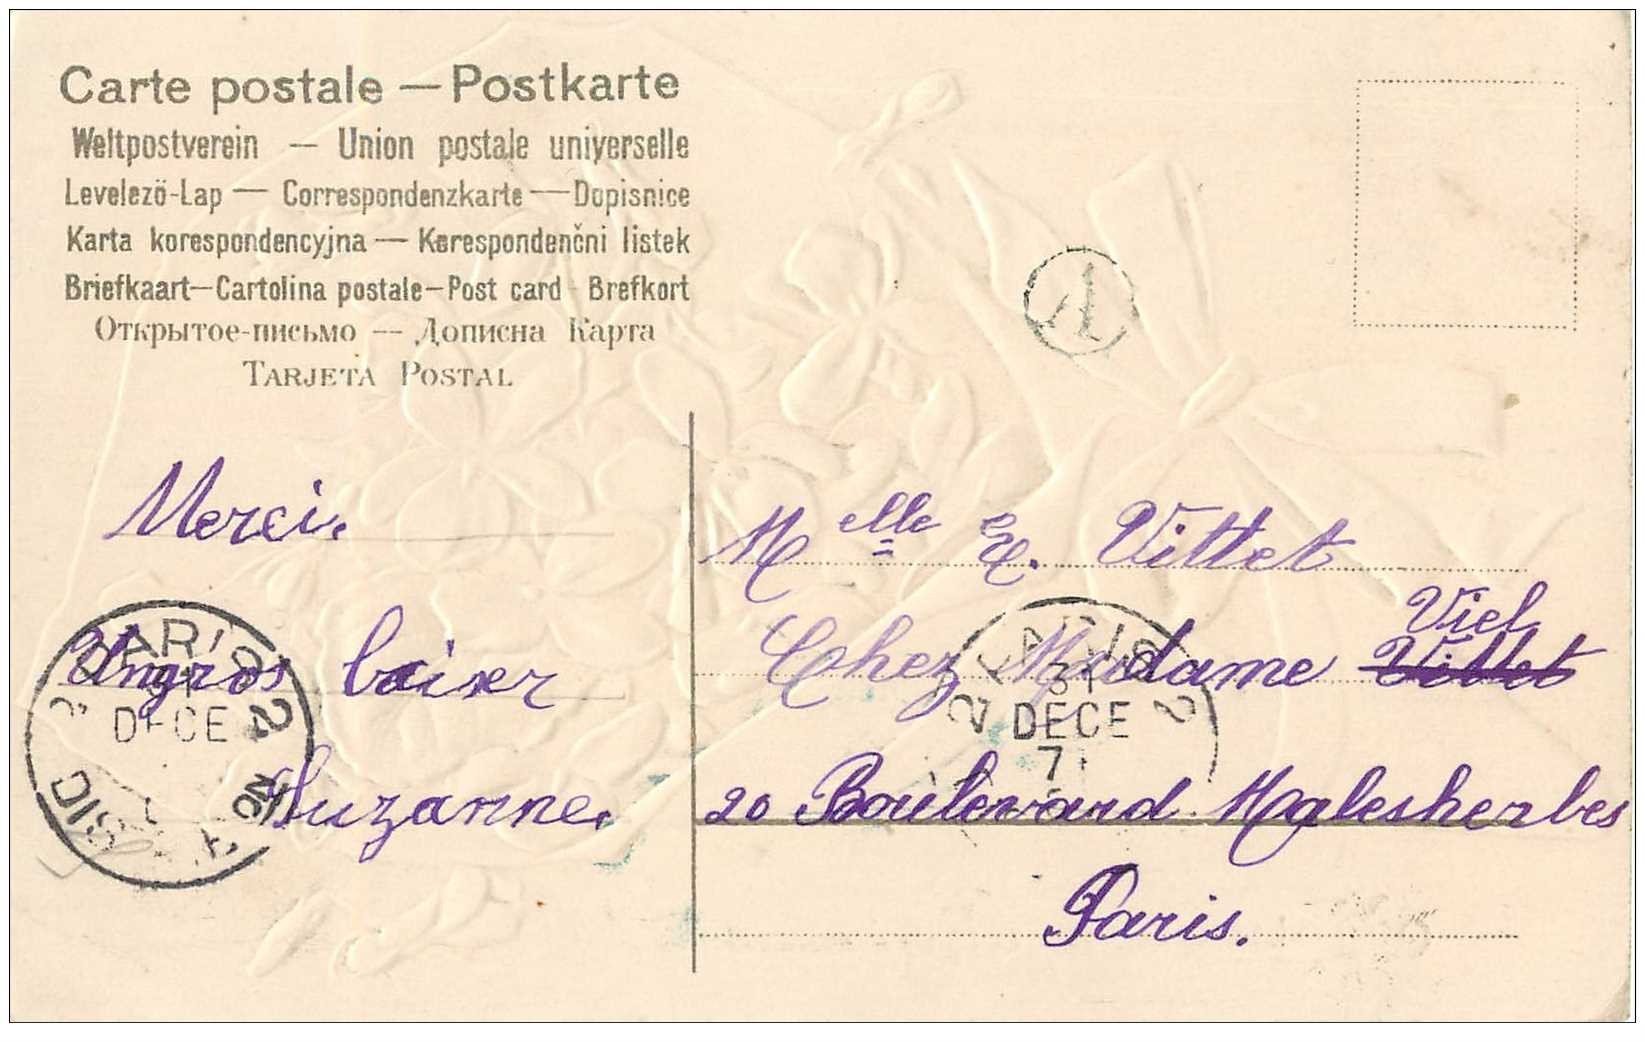 Carte postale — Postkarte
Weltpostverein — Union postale universelle
Levelező-Lap — Correspondenzkarte — Dopisnice
Karta korespondencyjna — Korespondenčni listek
Briefkaart — Cartolina postale — Post card - Brefkort
Открытое-письмо — Дописна Карта
TARJETA POSTAL
Merci.
Un gros baiser
Suzanne.
PARIS 2
31
DECE
DISTRIBUTION
A
Melle E. Vittet
Chez Madame Vittet Viel
20 Boulevard Malesherbes
Paris.
PARIS 2
31
DECE
7